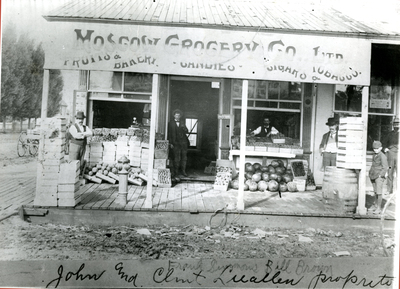 MOSCOW GROCERY CO. LTD.
FRUITS & BAKERY. CANDIES. CIGARS & TOBACCO.
John and Clint Lieuallen propreto